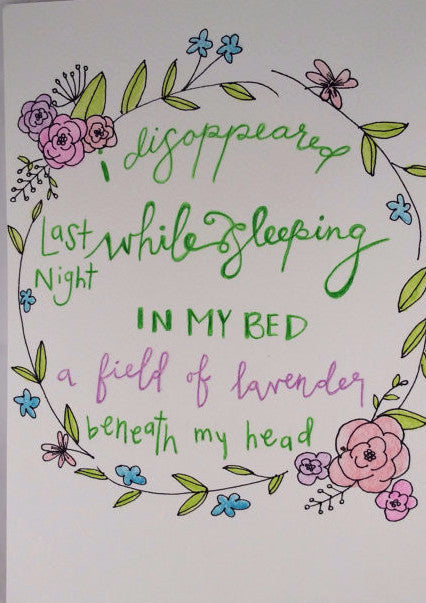 i disappeared
Last while sleeping
Night
IN MY BED
a field of lavender
beneath my head